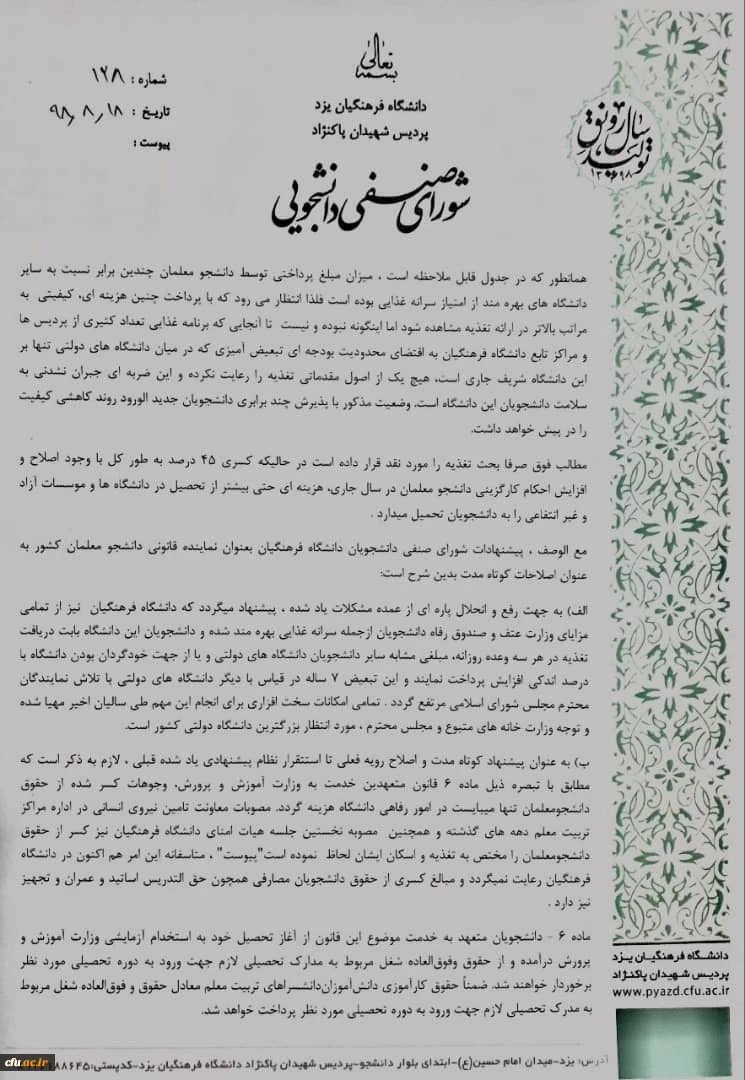 بسمه تعالی
دانشگاه فرهنگیان یزد
پردیس شهیدان پاکنژاد
شورای صنفی دانشجویی
شماره : ۱۲۸
تاریخ : ۹۸٫۸٫۱۸
پیوست :
سال رونق
تولید
۱۳۹۸
همانطور که در جدول قابل ملاحظه است ، میزان مبلغ پرداختی توسط دانشجو معلمان چندین برابر نسبت به سایر
دانشگاه های بهره مند از امتیاز سرانه غذایی بوده است فلذا انتظار می رود که با پرداخت چنین هزینه ای، کیفیتی به
مراتب بالاتر در ارائه تغذیه مشاهده شود اما اینگونه نبوده و نیست تا آنجایی که برنامه غذایی تعداد کثیری از پردیس ها
و مراکز تابع دانشگاه فرهنگیان به اقتضای محدودیت بودجه ای تبعیض آمیزی که در میان دانشگاه های دولتی تنها بر
این دانشگاه شریف جاری است، هیچ یک از اصول مقدماتی تغذیه را رعایت نکرده و این ضربه ای جبران نشدنی به
سلامت دانشجویان این دانشگاه است. وضعیت مذکور با پذیرش چند برابری دانشجویان جدید الورود روند کاهشی کیفیت
را در پیش خواهد داشت.
مطالب فوق صرفا بحث تغذیه را مورد نقد قرار داده است در حالیکه کسری ۴۵ درصد به طور کل با وجود اصلاح و
افزایش احکام کارگزینی دانشجو معلمان در سال جاری، هزینه ای حتی بیشتر از تحصیل در دانشگاه ها و موسسات آزاد
و غیر انتفاعی را به دانشجویان تحمیل میدارد .
مع الوصف ، پیشنهادات شورای صنفی دانشجویان دانشگاه فرهنگیان بعنوان نماینده قانونی دانشجو معلمان کشور به
عنوان اصلاحات کوتاه مدت بدین شرح است:
الف) به جهت رفع و انحلال پاره ای از عمده مشکلات یاد شده ، پیشنهاد میگردد که دانشگاه فرهنگیان نیز از تمامی
مزایای وزارت عتف و صندوق رفاه دانشجویان ازجمله سرانه غذایی بهره مند شده و دانشجویان این دانشگاه بابت دریافت
تغذیه در هر سه وعده روزانه، مبلغی مشابه سایر دانشجویان دانشگاه های دولتی و یا از جهت خودگردان بودن دانشگاه با
درصد اندکی افزایش پرداخت نمایند و این تبعیض ۷ ساله در قیاس با دیگر دانشگاه های دولتی با تلاش نمایندگان
محترم مجلس شورای اسلامی مرتفع گردد . تمامی امکانات سخت افزاری برای انجام این مهم طی سالیان اخیر مهیا شده
و توجه وزارت خانه های متبوع و مجلس محترم ، مورد انتظار بزرگترین دانشگاه دولتی کشور است.
ب) به عنوان پیشنهاد کوتاه مدت و اصلاح رویه فعلی تا ستتقرار نظام پیشنهادی یاد شده قبلی ، لازم به ذکر است که
مطابق با تبصره ذیل ماده ۶ قانون متعهدین خدمت به وزارت آموزش و پرورش، وجوهات کسر شده از حقوق
دانشجومعلمان تنها میبایست در امور رفاهی دانشگاه هزینه گردد. مصوبات معاونت تامین نیروی انسانی در اداره مراکز
تربیت معلم دهه های گذشته و همچنین مصوبه نخستین جلسه هیات امنای دانشگاه فرهنگیان نیز کسر از حقوق
دانشجومعلمان را مختص به تغذیه و اسکان ایشان لحاظ نموده است"پیوست" ، متاسفانه این امر هم اکنون در دانشگاه
فرهنگیان رعایت نمیگردد و مبالغ کسری از حقوق دانشجویان مصارفی همچون حق التدریس اساتید و عمران و تجهیز
نیز دارد .
ماده ۶ - دانشجویان متعهد به خدمت موضوع این قانون از آغاز تحصیل خود به استخدام آزمایشی وزارت آموزش و
پرورش درآمده و از حقوق وفوق‌العاده شغل مربوط به مدارک تحصیلی لازم جهت ورود به دوره تحصیلی مورد نظر
برخوردار خواهند شد. ضمناً حقوق کارآموزی دانش‌آموزان‌دانشسراهای تربیت معلم معادل حقوق و فوق‌العاده شغل مربوط
به مدرک تحصیلی لازم جهت ورود به دوره تحصیلی مورد نظر پرداخت خواهد شد.
دانشگاه فرهنگیان یزد
پردیس شهیدان پاکنژاد
www.pyazd.cfu.ac.ir
آدرس: یزد-میدان امام حسین(ع)-ابتدای بلوار دانشجو-پردیس شهیدان پاکنژاد دانشگاه فرهنگیان یزد-کدپستی:
cfu.ac.ir